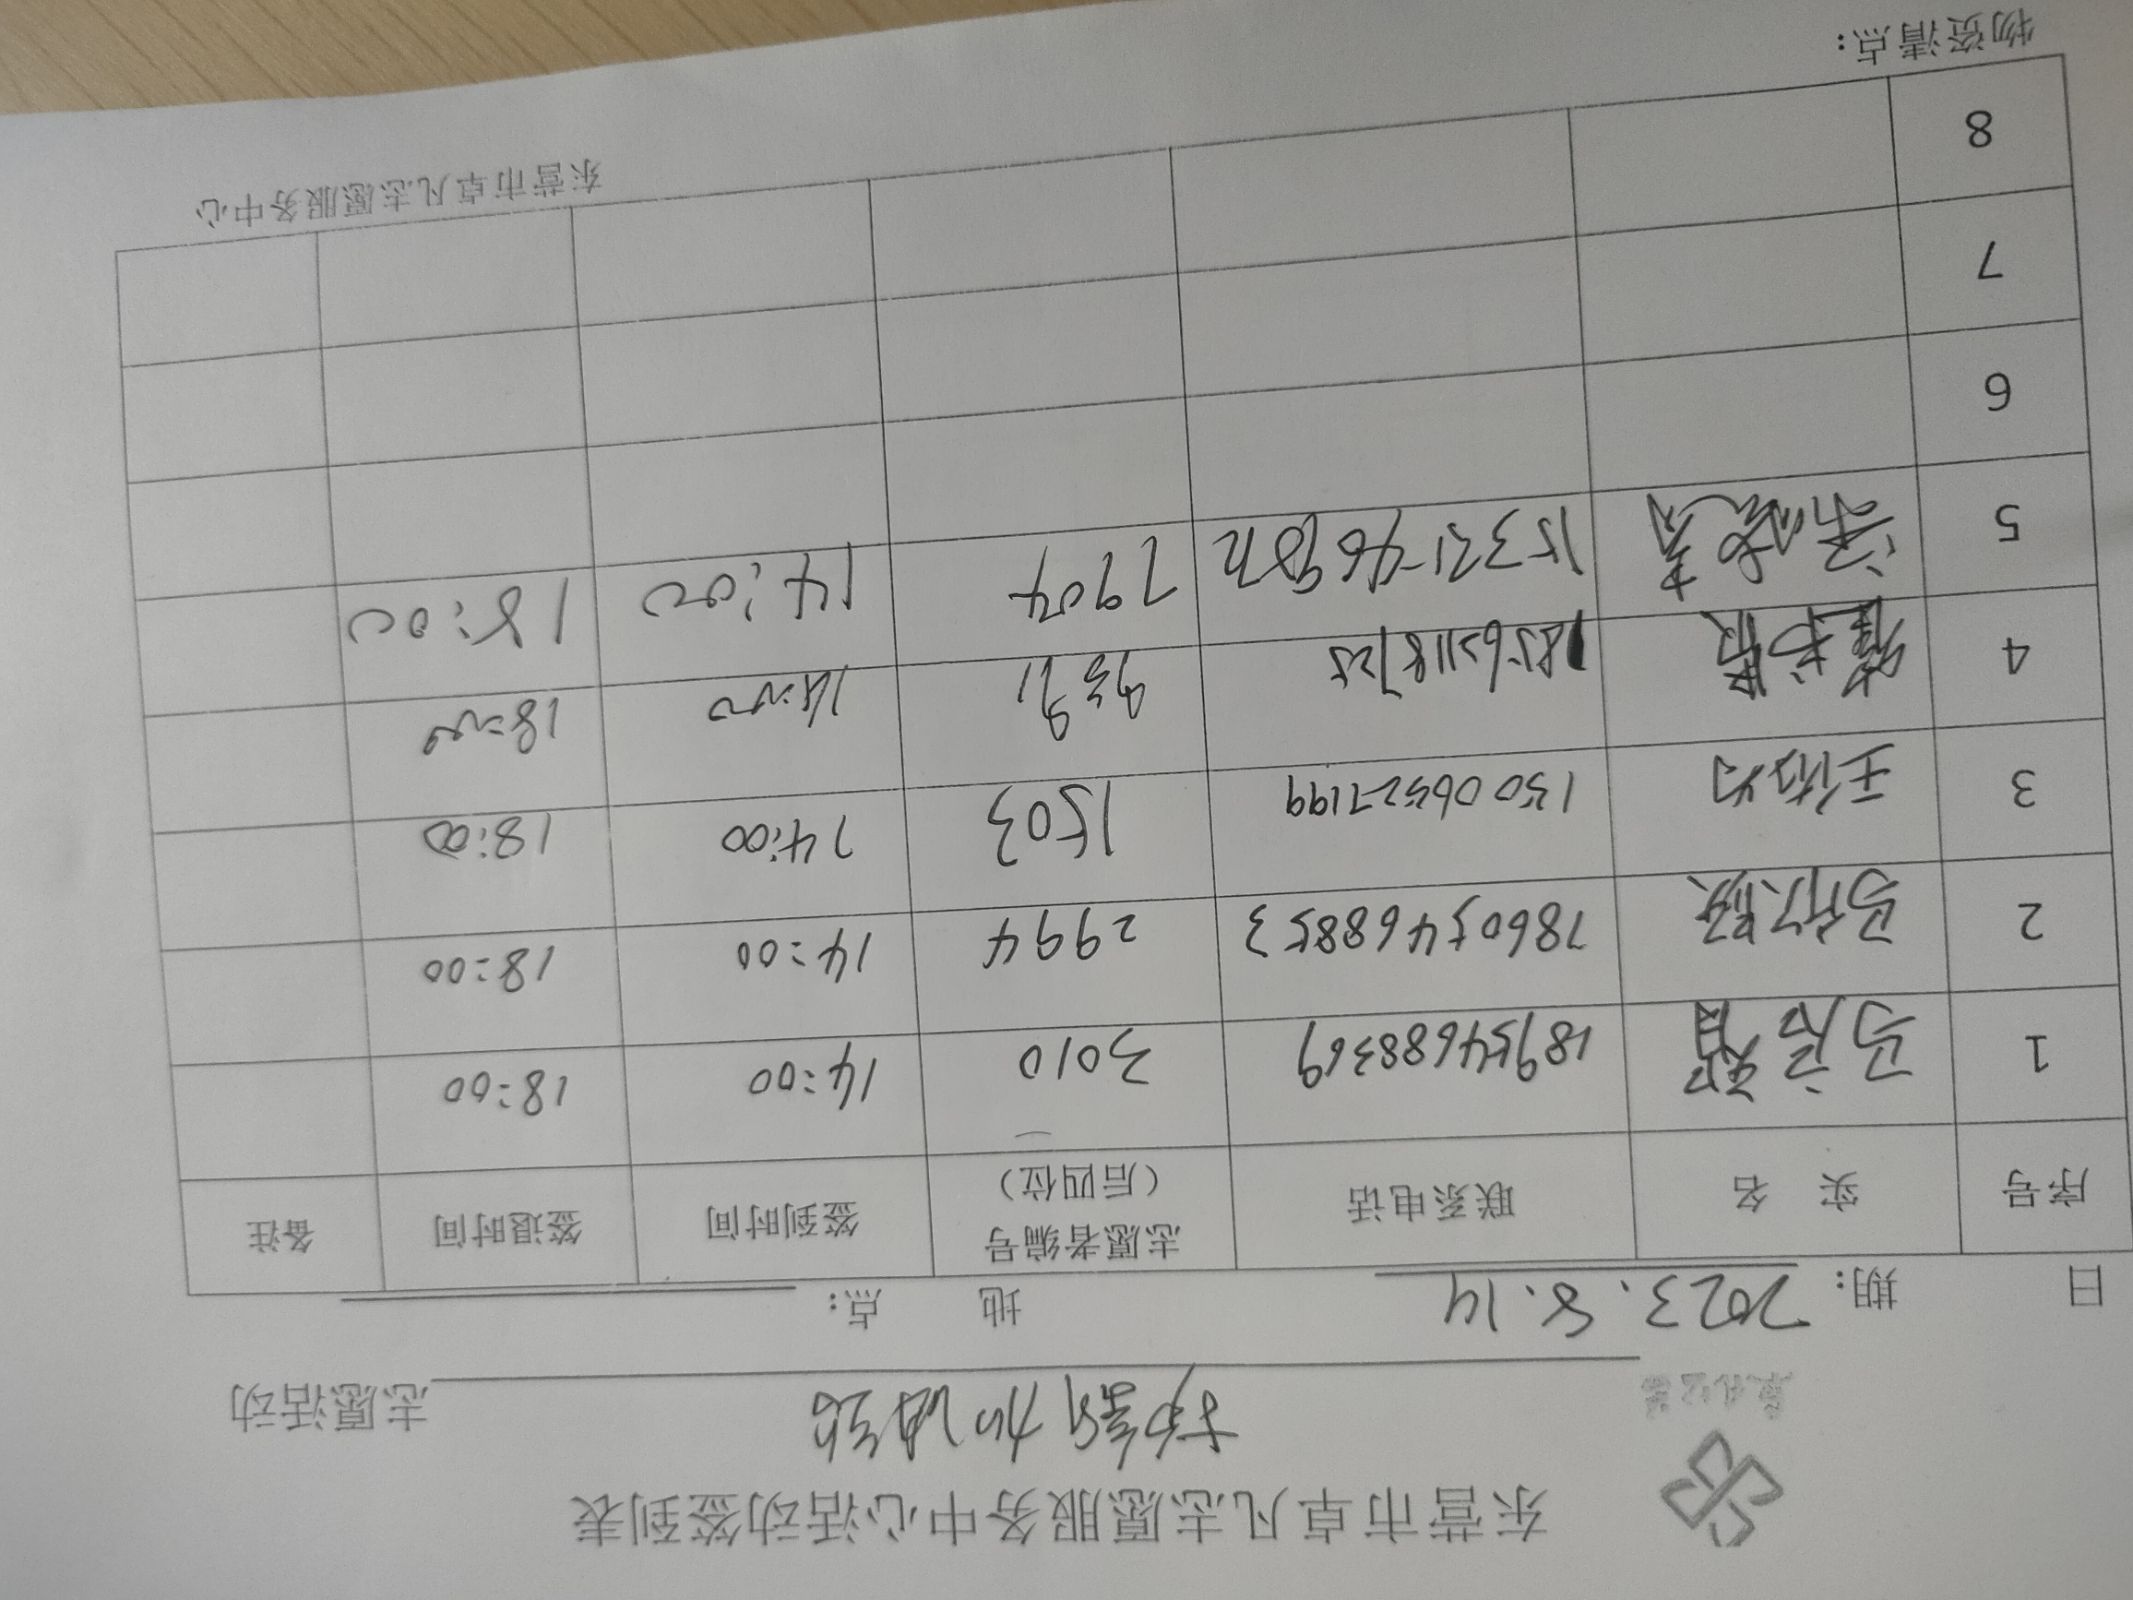 东营市卓凡志愿服务中心活动签到表
护薪加油站 志愿活动
日 期: 2023.8.14 地 点:
序号 实 名 联系电话 志愿者编号(后四位) 签到时间 签退时间 备注
1 18954688369 3010 14:00 18:00
2 马钦殿 17860546885 3 2994 14:00 18:00
3 13006527199 1503 14:00 18:00
4 18562118725 9391 14:00 18:00
5 7904 14:00 18:00
6
7
8
东营市卓凡志愿服务中心
物资清点: